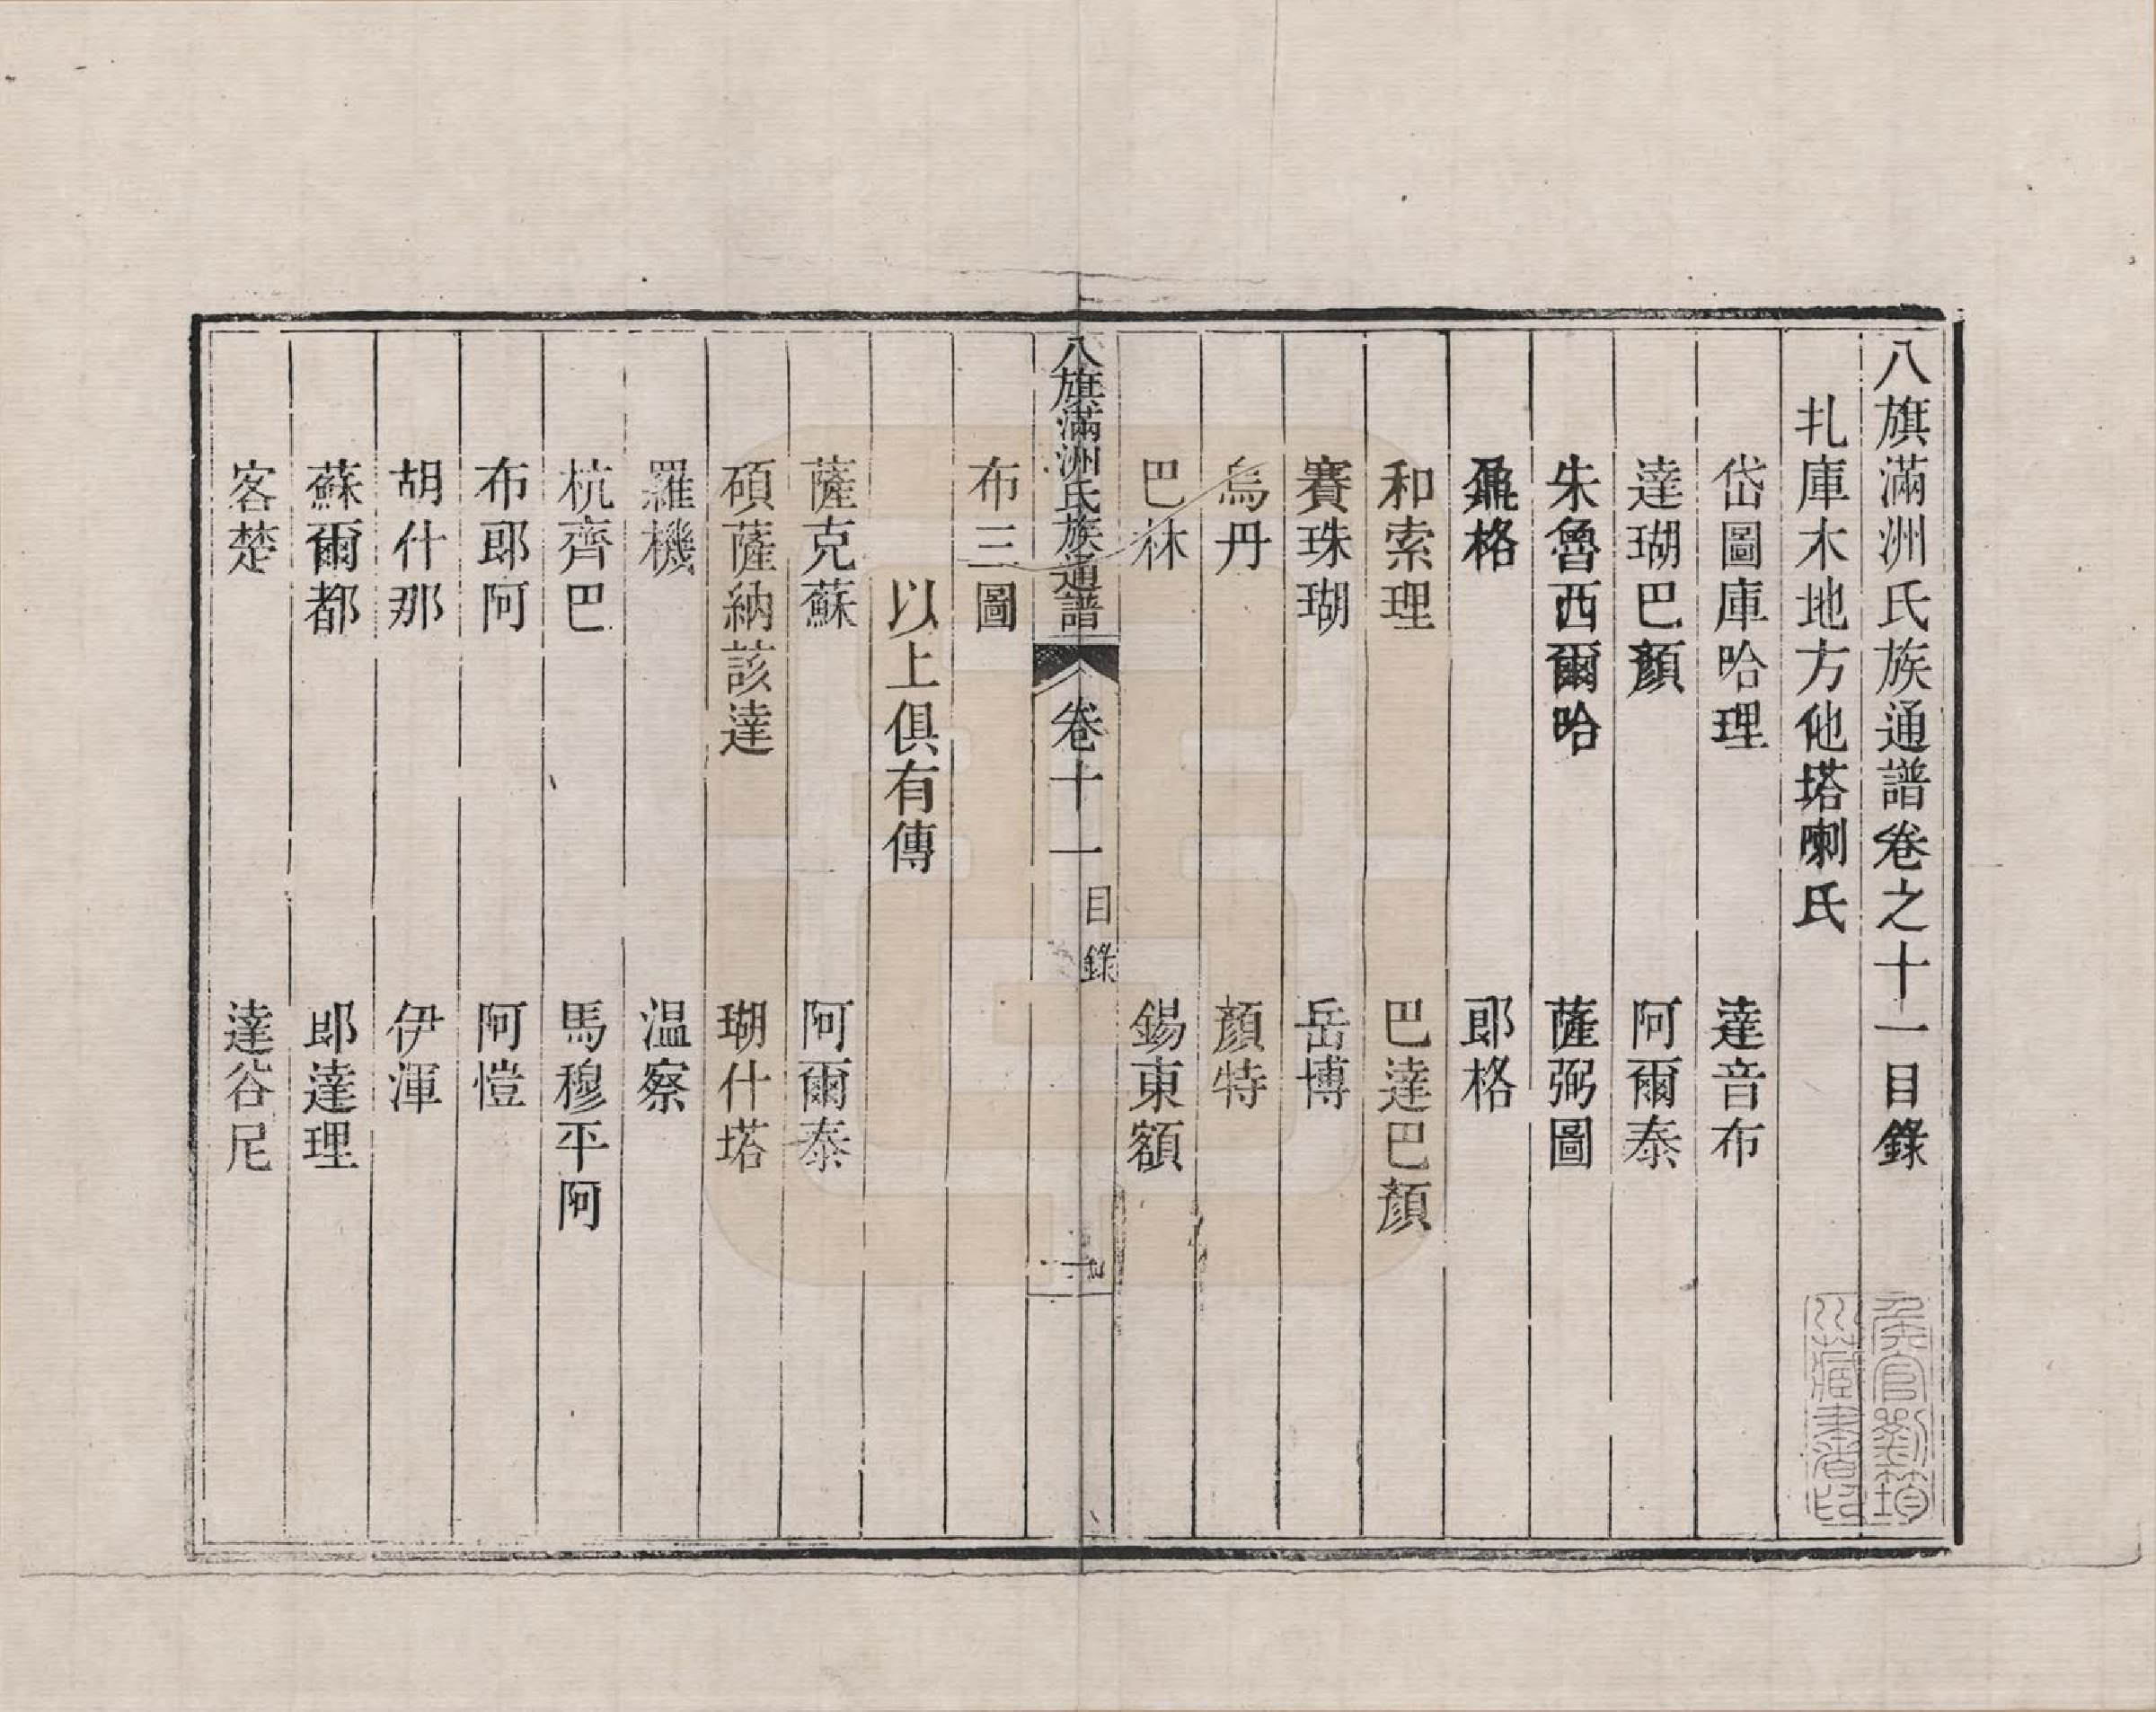 八旗滿洲氏族通譜卷之十一目錄
扎庫木地方他塔喇氏
岱圖庫哈理 達音布
達瑚巴顏 阿爾泰
朱魯西爾哈 薩弼圖
鼐格 郎格
和索理 巴達巴顏
賽珠瑚 岳博
烏丹 顏特
巴林 錫東額
八旗滿洲氏族通譜 卷十一 目錄 一
布三圖
以上俱有傳
薩克蘇 阿爾泰
碩薩納該達 瑚什塔
羅機 溫察
杭齊巴 馬穆平阿
布郎阿 阿愷
胡什那 伊渾
蘇爾都 郎達理
客楚 達谷尼
侯官劉筠
川藏書畫印